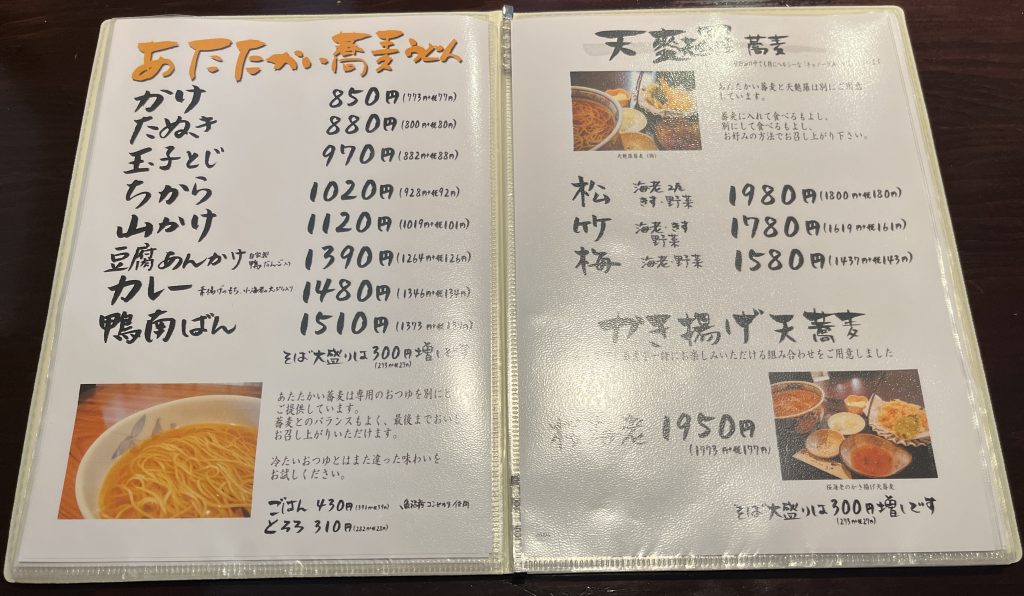 あたたかい蕎麦うどん
かけ 850円(773円+税77円)
たぬき 880円(800円+税80円)
玉子とじ 970円(882円+税88円)
ちから 1020円(928円+税92円)
山かけ 1120円(1019円+税101円)
豆腐あんかけ 自家製 鴨だんご入り 1390円(1264円+税126円)
カレー 1480円(1346円+税134円)
鴨南ばん 1510円(1373円+税137円)
そば大盛りは300円増しです
(273円+税27円)
あたたかい蕎麦は専用のおつゆを別にと
ご提供しています。
蕎麦とのバランスもよく、最後までおいし
お召し上がりいただけます。
冷たいおつゆとはまた違った味わいを
お試しください。
ごはん 430円(391円+税39円) 魚沼産コシヒカリ使用
とろろ 310円(282円+税28円)
天 蕎麦
あたたかい蕎麦と天麩羅は別にご用意
しています。
蕎麦に入れて食べるもよし、
別にして食べるもよし、
お好みの方法でお召し上がり下さい。
天麩羅蕎麦(梅)
松 海老2尾 きす・野菜 1980円(1800円+税180円)
竹 海老・きす 野菜 1780円(1619円+税161円)
梅 海老・野菜 1580円(1437円+税143円)
かき揚げ天蕎麦
一緒にお楽しみいただける組み合わせをご用意しました
桜海老 1950円
(1773円+税177円)
桜海老のかき揚げ天蕎麦
そば大盛りは300円増しです
(273円+税27円)